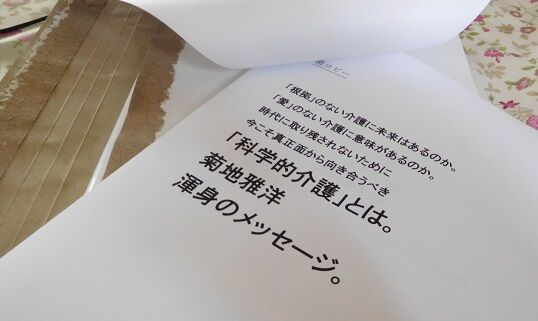 帯コピー
「根拠」のない介護に未来はあるのか。
「愛」のない介護に意味があるのか。
時代に取り残されないために
今こそ真正面から向き合うべき
「科学的介護」とは。
菊地雅洋
渾身のメッセージ。